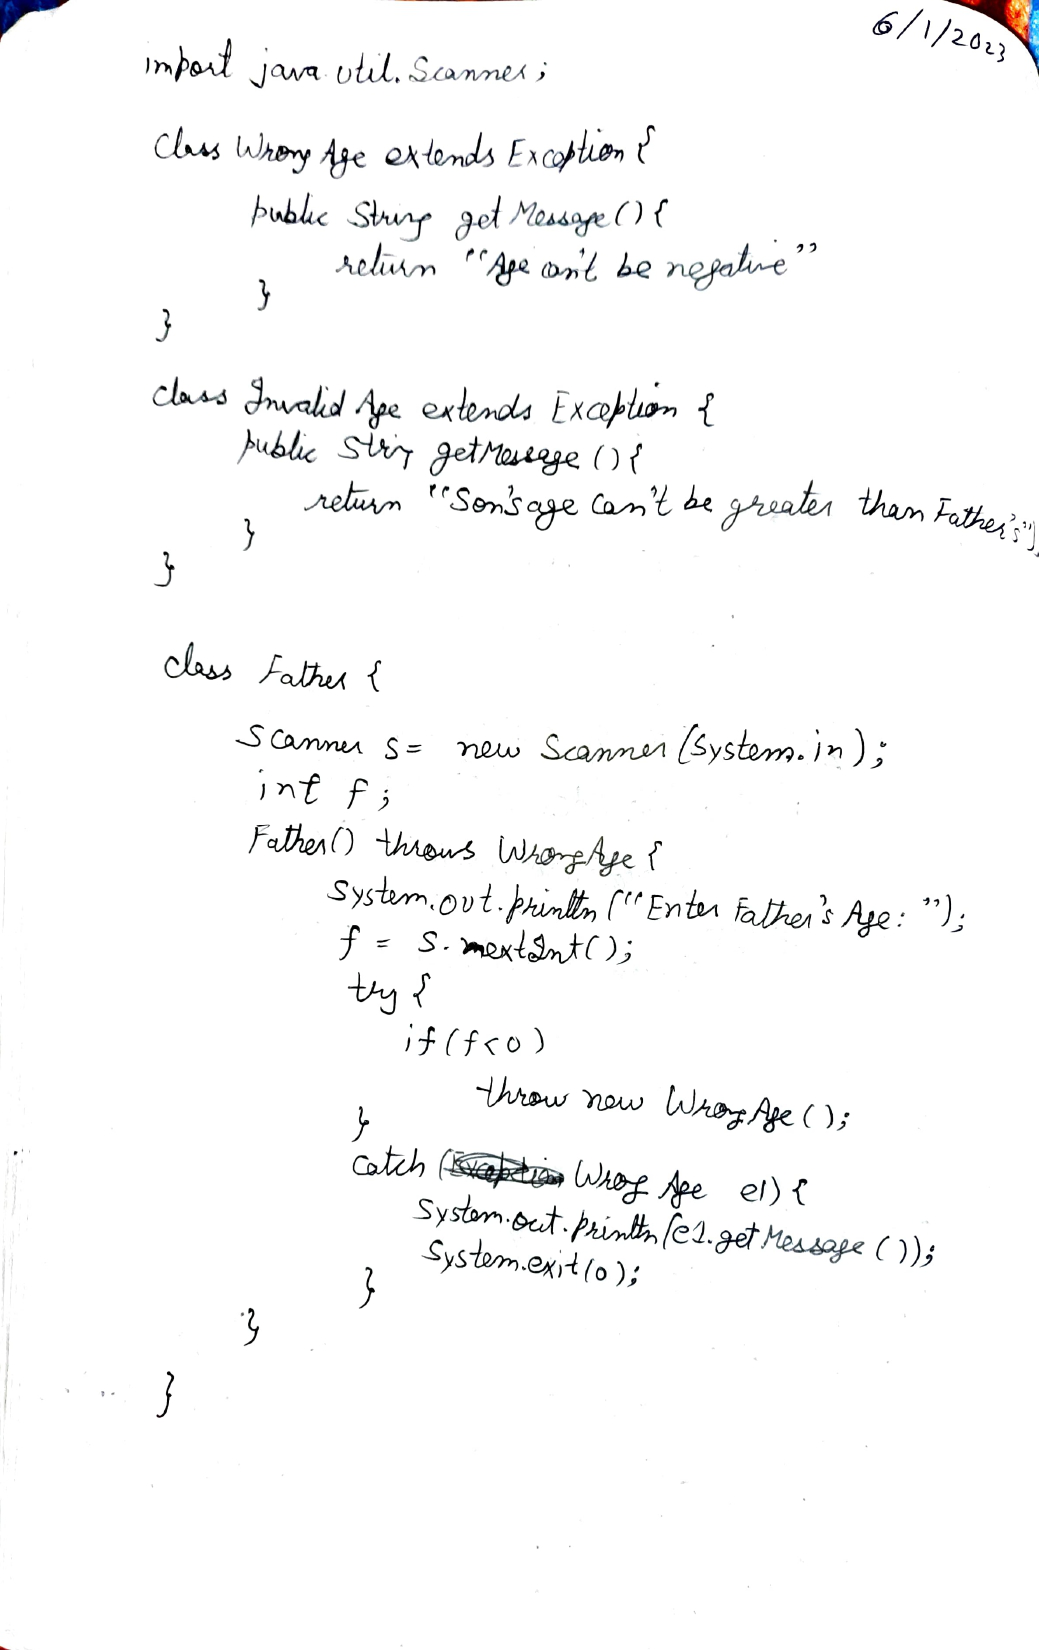 6/1/2023
import java.util.Scanner;
class Wrong Age extends Exception {
public String get Message () {
return "Age can't be negative"
}
}
class Invalid Age extends Exception {
public String getMessage () {
return "Son's age can't be greater than Father's");
}
}
class Father {
Scanner s = new Scanner (System.in);
int f;
Father() throws WrongAge {
System.out.println ("Enter Father's Age: ");
f = s.nextInt();
try {
if (f<0)
throw new WrongAge ();
}
catch (Wrong Age e1) {
System.out.println (e1.getMessage ());
System.exit(0);
}
}
}